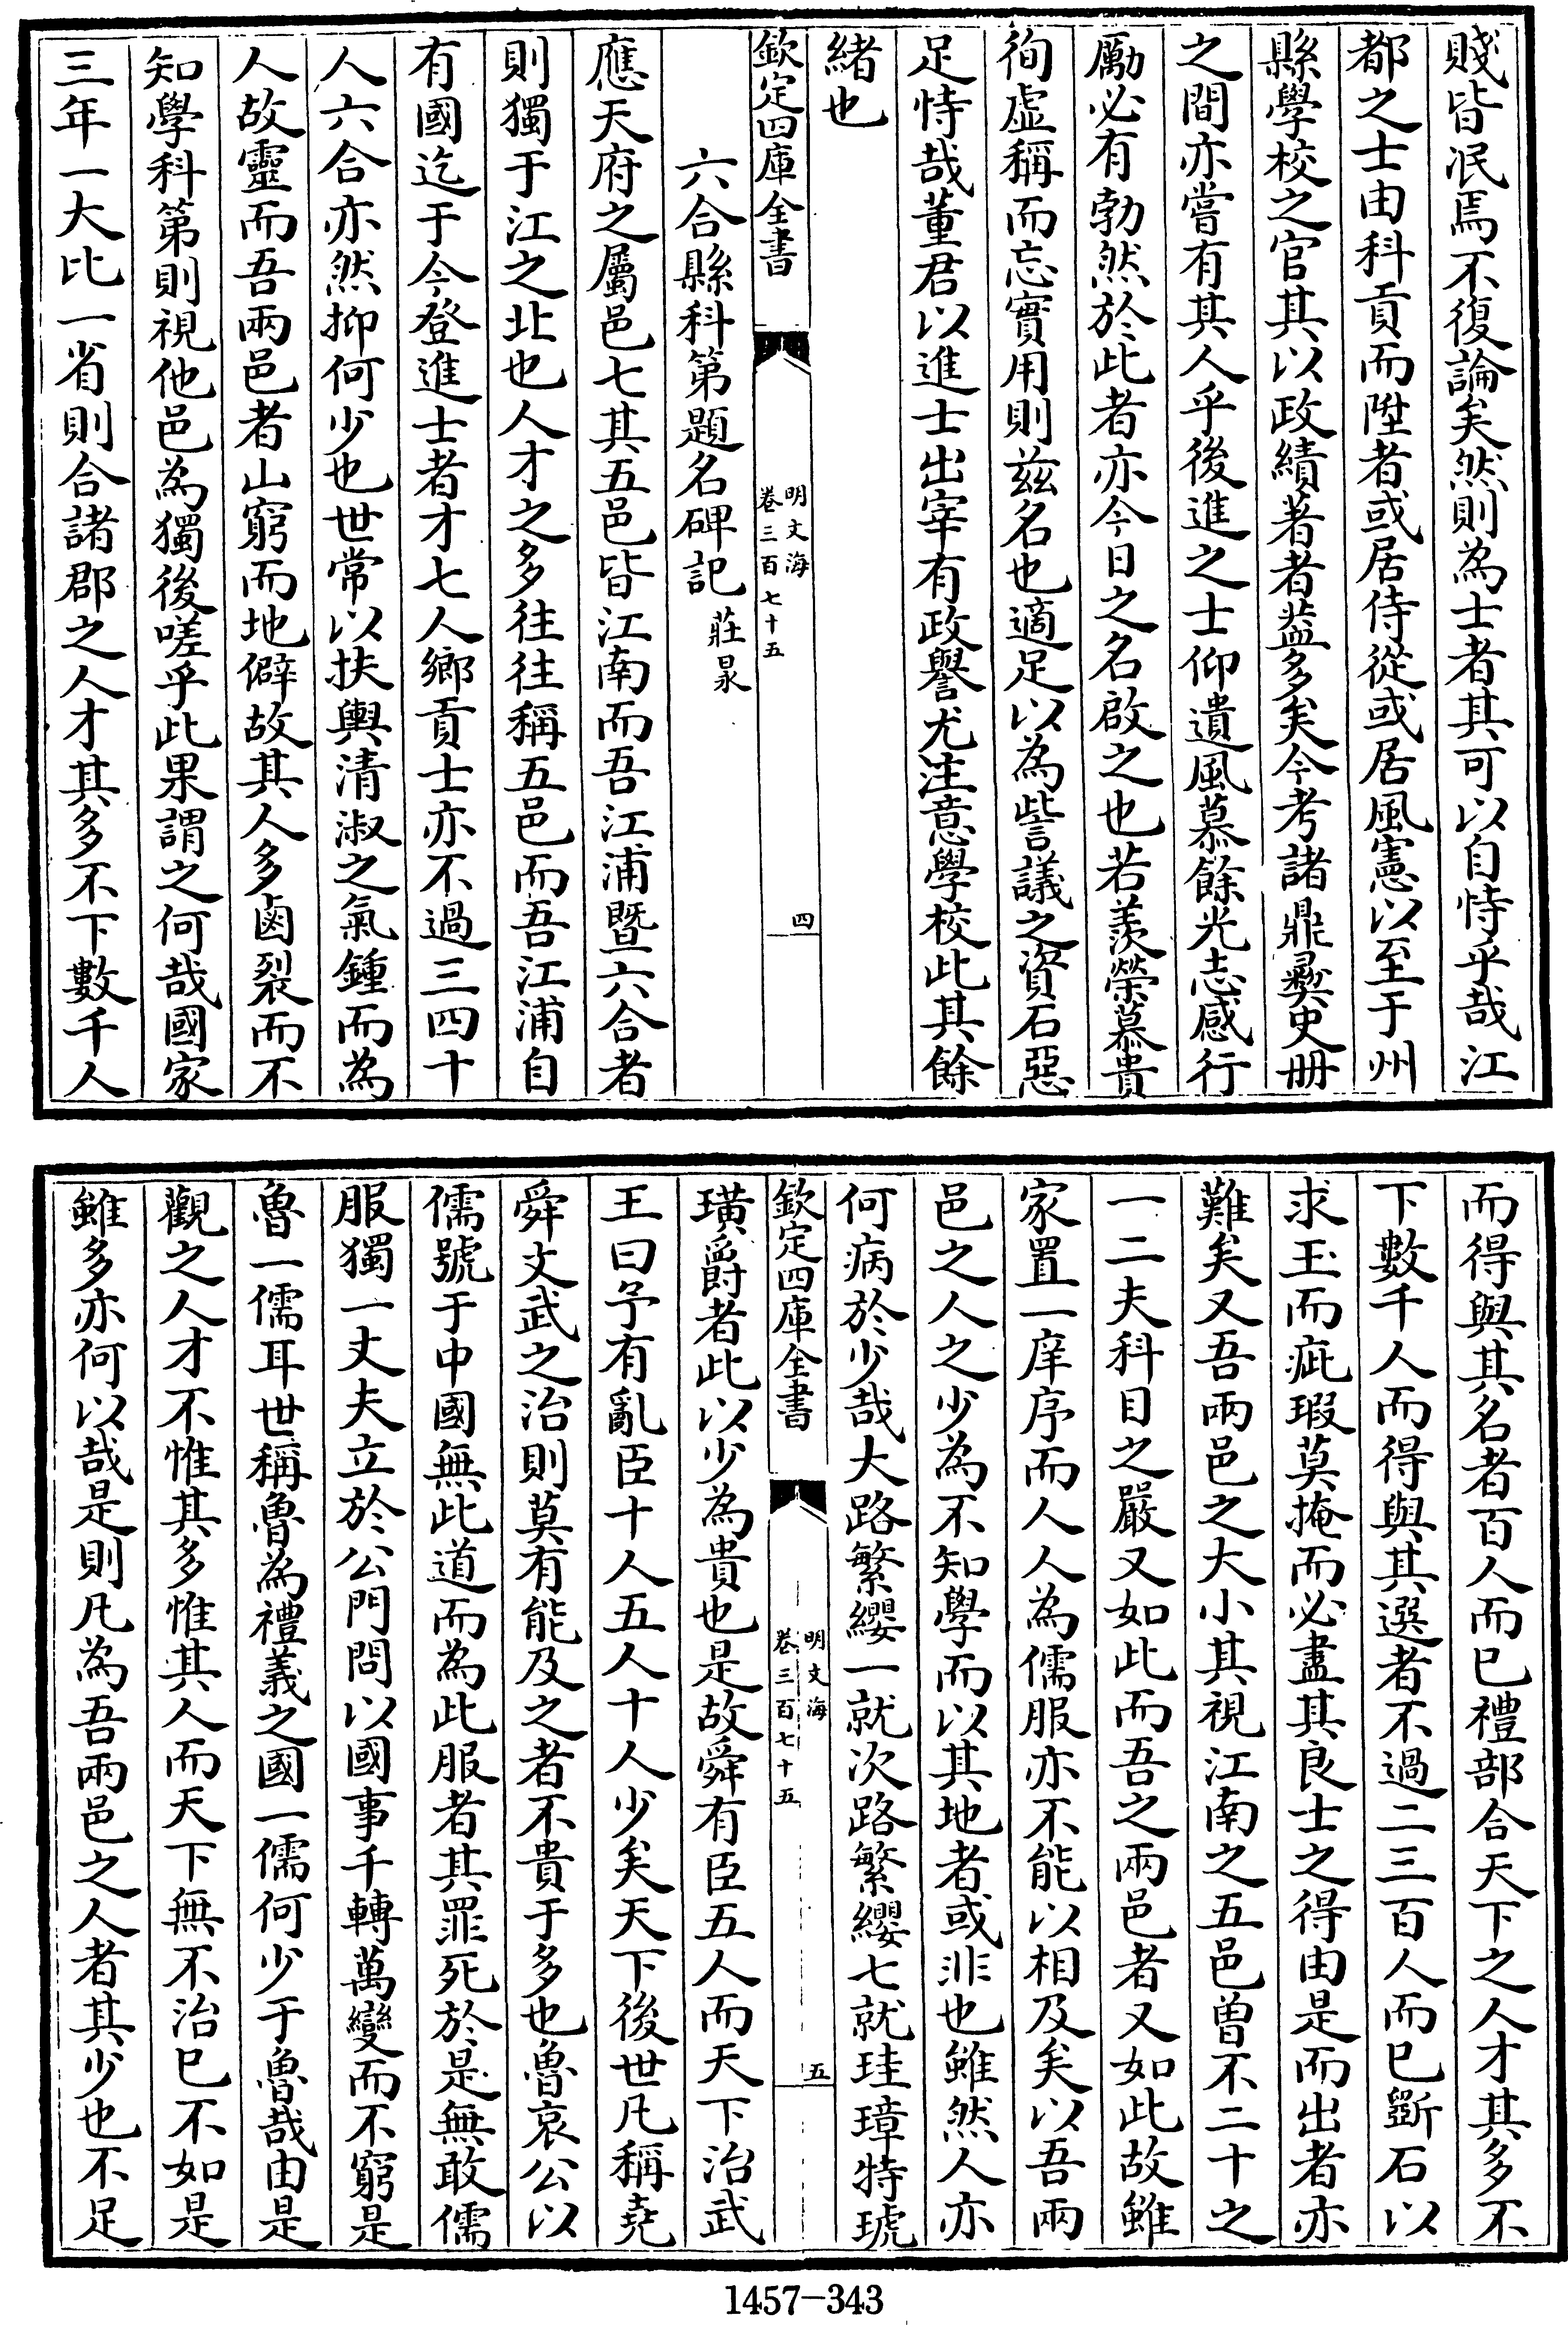 賤皆泯焉不復論矣然則為士者其可以自恃乎哉江
都之士由科貢而陞者或居侍從或居風憲以至于州
縣學校之官其以政績著者葢多矣今考諸鼎彛史冊
之間亦嘗有其人乎後進之士仰遺風慕餘光志感行
勵必有勃然於此者亦今日之名啟之也若羨榮慕貴
徇虛稱而忘實用則兹名也適足以為訾議之資石惡
足恃哉董君以進士出宰有政譽尤注意學校此其餘
緒也
欽定四庫全書
明文海
卷三百七十五
四
六合縣科第題名碑記莊㫤
應天府之屬邑七其五邑皆江南而吾江浦暨六合者
則獨于江之北也人才之多往往稱五邑而吾江浦自
有國迄于今登進士者才七人鄉貢士亦不過三四十
人六合亦然抑何少也世常以扶輿清淑之氣鍾而為
人故靈而吾兩邑者山窮而地僻故其人多鹵裂而不
知學科第則視他邑為獨後嗟乎此果謂之何哉國家
三年一大比一省則合諸郡之人才其多不下數千人
而得與其名者百人而已禮部合天下之人才其多不
下數千人而得與其選者不過二三百人而已斵石以
求玉而疵瑕莫掩而必盡其良士之得由是而出者亦
難矣又吾兩邑之大小其視江南之五邑曾不二十之
一二夫科目之嚴又如此而吾之兩邑者又如此故雖
家置一庠序而人人為儒服亦不能以相及矣以吾兩
邑之人之少為不知學而以其地者或非也雖然人亦
何病於少哉大路繁纓一就次路繁纓七就珪璋特琥
欽定四庫全書
明文海
卷三百七十五
五
璜爵者此以少為貴也是故舜有臣五人而天下治武
王曰予有亂臣十人五人十人少矣天下後世凡稱堯
舜文武之治則莫有能及之者不貴于多也魯哀公以
儒號于中國無此道而為此服者其罪死於是無敢儒
服獨一丈夫立於公門問以國事千轉萬變而不窮是
魯一儒耳世稱魯為禮義之國一儒何少于魯哉由是
觀之人才不惟其多惟其人而天下無不治已不如是
雖多亦何以哉是則凡為吾兩邑之人者其少也不足
1457-343